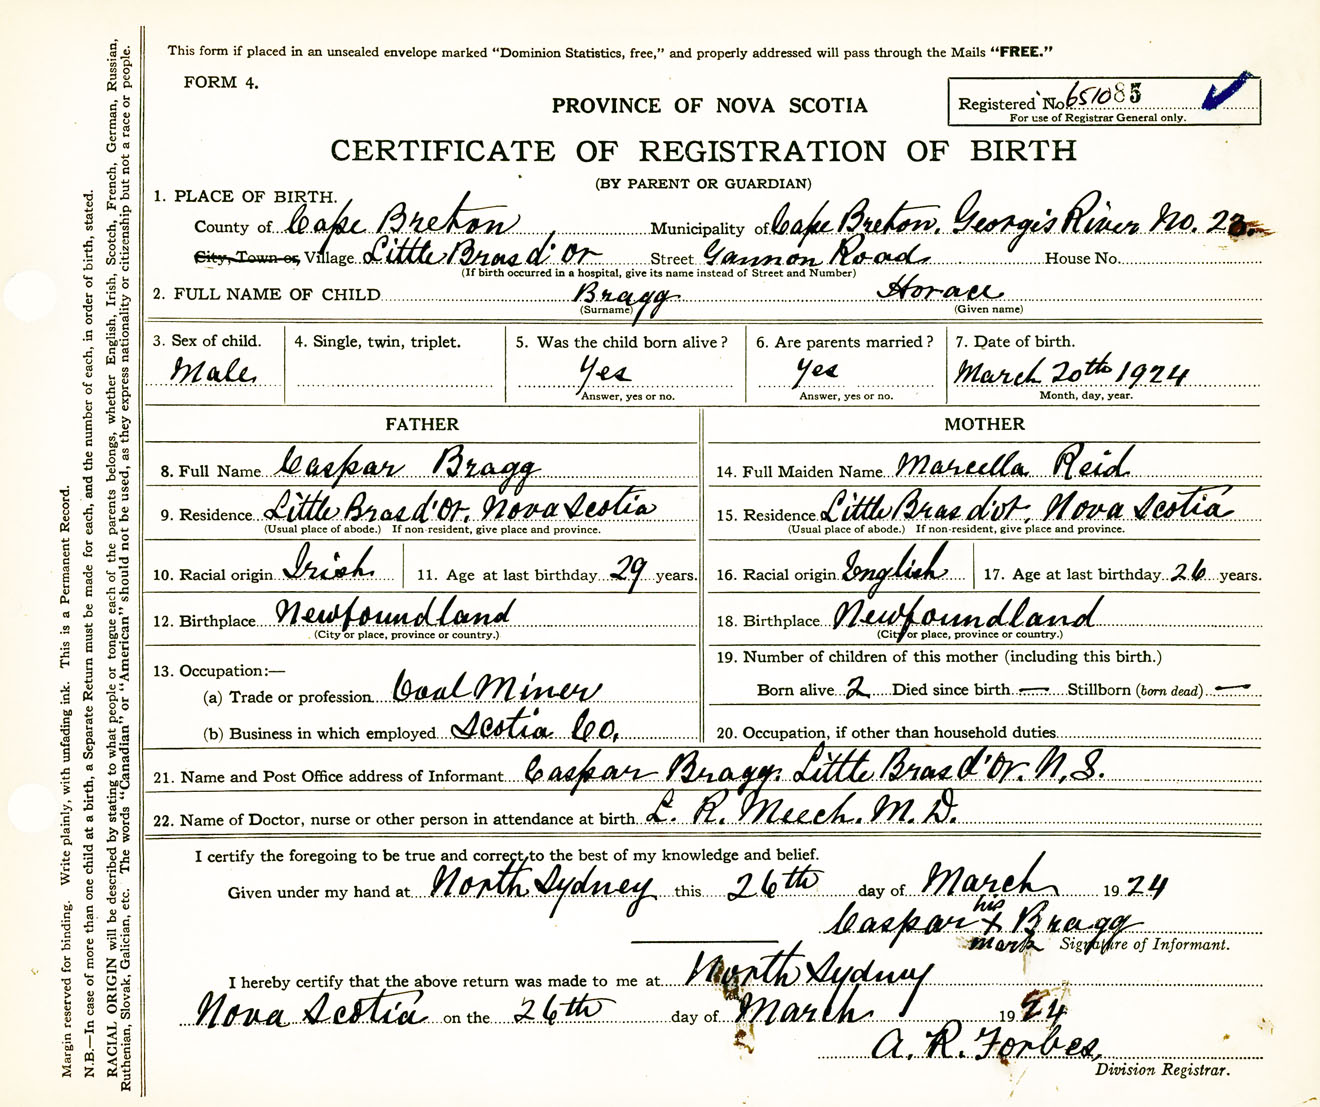 This form if placed in an unsealed envelope marked "Dominion Statistics, free," and properly addressed will pass through the Mails "FREE."
FORM 4.
PROVINCE OF NOVA SCOTIA
Registered No. 651085
For use of Registrar General only.
CERTIFICATE OF REGISTRATION OF BIRTH
(BY PARENT OR GUARDIAN)
1. PLACE OF BIRTH.
County of Cape Breton Municipality of Cape Breton, Georgis River No. 23.
City, Town or Village Little Bras d'Or Street Gannon Road House No.
(If birth occurred in a hospital, give its name instead of Street and Number)
2. FULL NAME OF CHILD Bragg Horace
(Surname) (Given name)
3. Sex of child. 4. Single, twin, triplet. 5. Was the child born alive? 6. Are parents married? 7. Date of birth.
Male Yes Yes March 20th 1924
Answer, yes or no. Answer, yes or no. Month, day, year.
FATHER MOTHER
8. Full Name Caspar Bragg 14. Full Maiden Name Marcella Reid
9. Residence Little Bras d'Or, Nova Scotia 15. Residence Little Bras d'Or, Nova Scotia
(Usual place of abode.) If non-resident, give place and province. (Usual place of abode.) If non-resident, give place and province.
10. Racial origin Irish 11. Age at last birthday 29 years. 16. Racial origin English 17. Age at last birthday 26 years.
12. Birthplace Newfoundland 18. Birthplace Newfoundland
(City or place, province or country.) (City or place, province or country.)
13. Occupation:— 19. Number of children of this mother (including this birth.)
(a) Trade or profession Coal Miner Born alive 2 Died since birth — Stillborn (born dead) —
(b) Business in which employed Scotia Co. 20. Occupation, if other than household duties
21. Name and Post Office address of Informant Caspar Bragg. Little Bras d'Or. N.S.
22. Name of Doctor, nurse or other person in attendance at birth L. R. Meech. M.D.
I certify the foregoing to be true and correct to the best of my knowledge and belief.
Given under my hand at North Sydney this 26th day of March 1924
Caspar his X mark Bragg
Signature of Informant.
I hereby certify that the above return was made to me at North Sydney
Nova Scotia on the 26th day of March 1924
A. R. Forbes,
Division Registrar.
Margin reserved for binding. Write plainly, with unfading ink. This is a Permanent Record.
N.B.—In case of more than one child at a birth, a Separate Return must be made for each, and the number of each, in order of birth, stated.
RACIAL ORIGIN will be described by stating to what people or tongue each of the parents belongs, whether English, Irish, Scotch, French, German, Russian,
Ruthenian, Slovak, Galician, etc. The words "Canadian" or "American" should not be used, as they express nationality or citizenship but not a race or people.